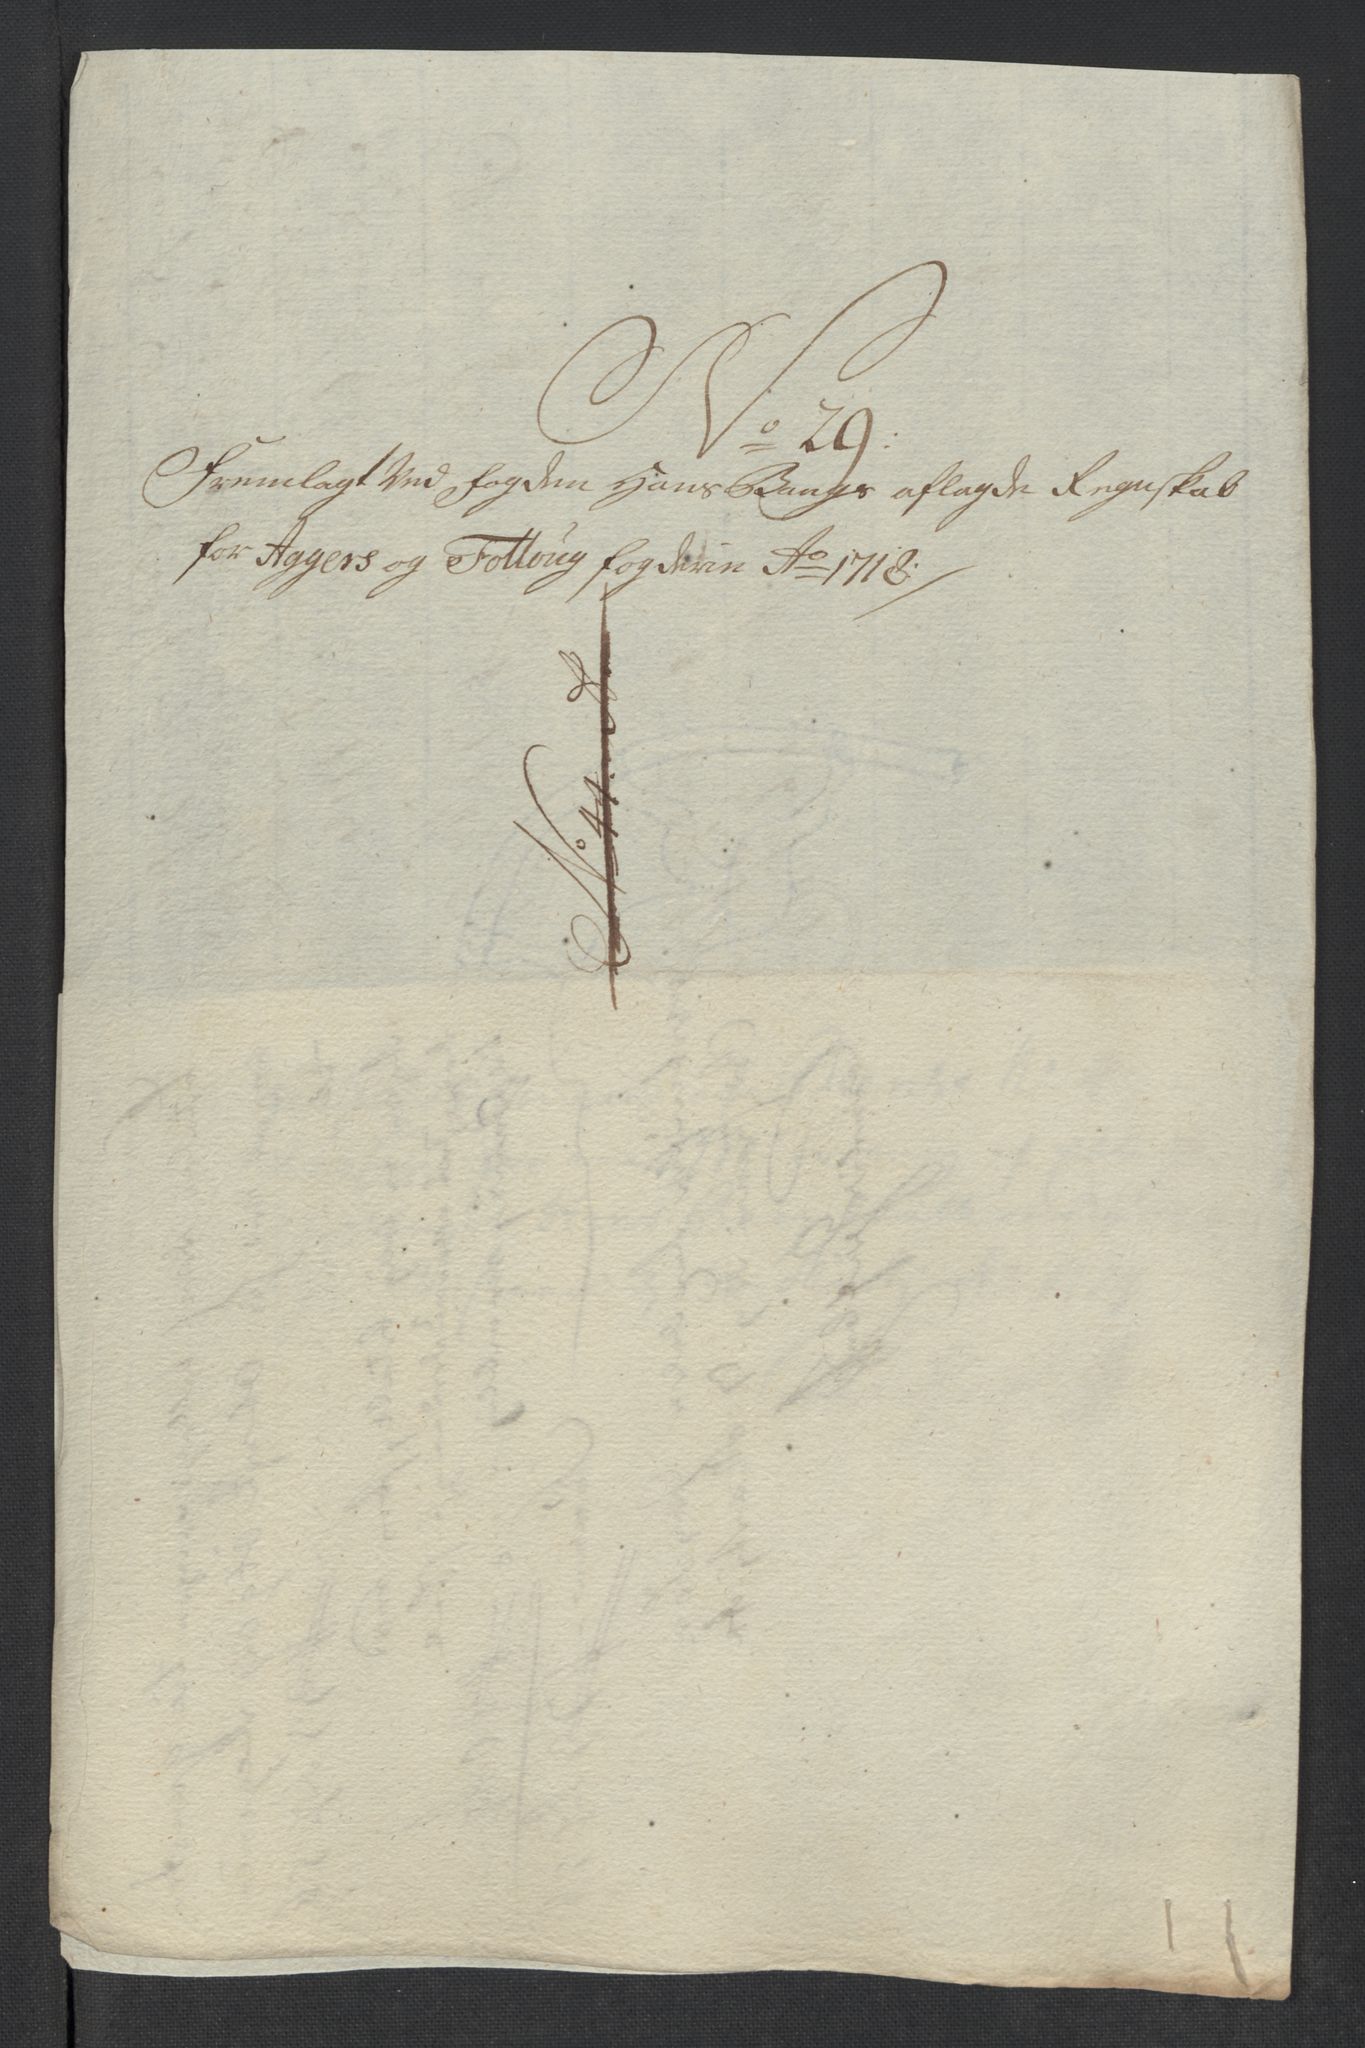 No 29:
Fremlagt Ved fogden Hans Bangs aflagde Regnskab
for Aggers og Folloug fogderie Ao 1718:
No 44.